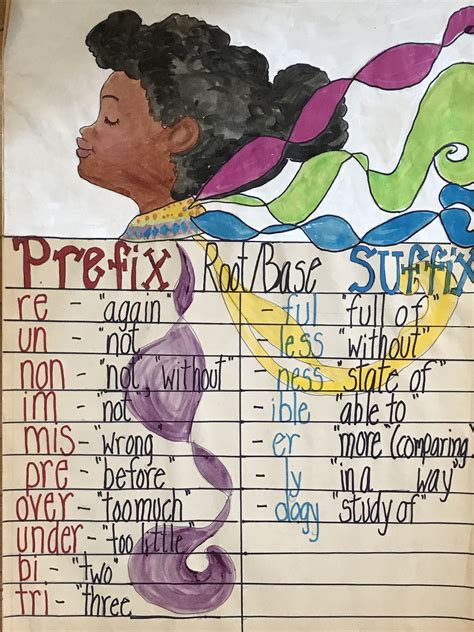 Prefix Root/Base Suffix
re - "again" - ful "full of"
un - "not" - less "without"
non - "not, without" - ness "state of"
im - "not" - ible "able to"
mis - "wrong" - er "more (comparing)
pre - "before" - ly "in a __ way"
over - "too much" - ology "study of"
under - "too little"
bi - "two"
tri - "three